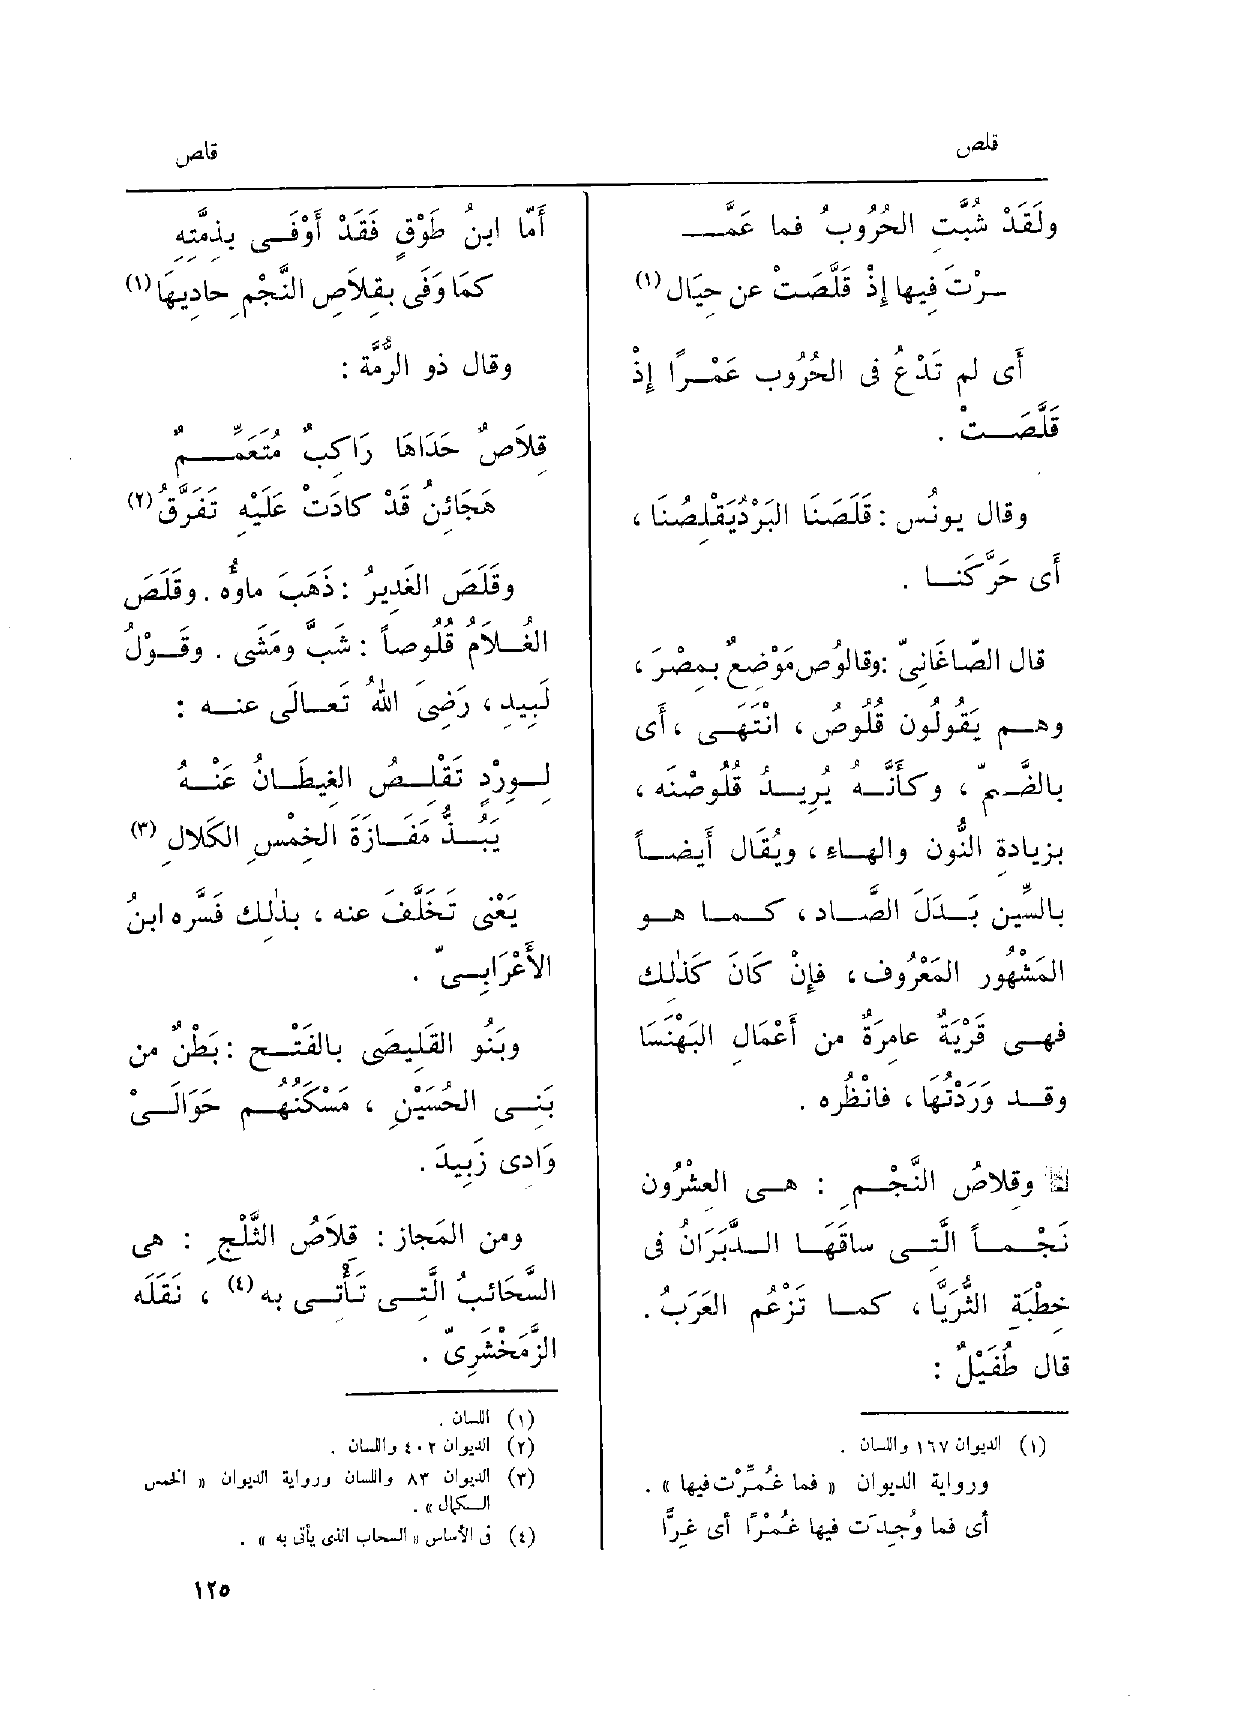 قلص
قلص
ولَقَدْ شُبَّتِ الحُرُوبُ فما عَمَّـ
ـرْتَ فيها إذْ قَلَّصَتْ عن حِيَالِ (١)
أَى لم تَدْعُ فى الحُرُوبِ عَمْـرًا إذْ
قَلَّصَـتْ .
وقال يونُس : قَلَصَنَا البَرْدُيَقْلِصُنَا ،
أَى حَرَّكَنَـا .
قال الصّاغَانِىّ :وقالُوص مَوْضعٌ بمِصْرَ ،
وهـم يَقُولُون قُلُوص ، انْتَهَـى ، أَى
بالضَّـمّ ، وكأَنَّـه يُرِيـدُ قُلُوصْنَه ،
بزيادة النُّون والهـاء ، ويُقَال أَيضـاً
بالسِّين بَـدَلَ الصَّـاد ، كـمـا هـو
المَشْهُور المَعْرُوف ، فإِنْ كَانَ كَذٰلك
فهـى قَرْيَةٌ عامِرَةٌ من أَعْمَال البَهْنَسَا
وقـد وَرَدْتُهَا ، فانْظُره .
وقِلاصُ النَّجْـمِ : هـى العِشْرُون
نَجْـمـاً الَّتِـى ساقَهَـا الـدَّبَرَانُ فى
خِطْبَةِ الثُّرَيَّا ، كمـا تَزْعُم العَرَبُ .
قال طُفَيْلٌ :
(١) الديوان ١٦٧ واللسان .
ورواية الديوان « فما غُمِّرْتَ فيها » .
أى فما وُجِدَت فيها غُمْرًا أى غِرًّا
أَمّا ابنُ طَوْقٍ فَقَدْ أَوْفَـى بِذِمَّتِهِ
كمَا وَفَى بقِلاَصِ النَّجْمِ حادِيهَا (١)
وقال ذو الرُّمَّة :
قِلاَصٌ حَدَاهَا رَاكِبٌ مُتَعَمِّـمٌ
هَجَائنُ قَدْ كادَتْ عَلَيْهِ تَفَرَّقُ (٢)
وقَلَصَ الغَدِيرُ : ذَهَبَ ماؤُه . وقَلَصَ
الغُـلاَمُ قُلُوصاً : شَبَّ ومَشَى . وقَـوْلُ
لَبِيد ، رَضِىَ اللهُ تَعـالَى عنـه :
لِـوِرْدٍ تَقْلِـصُ الغِيطَـانُ عَنْـهُ
يَبُـذُّ مَفَـازَةَ الخِمْسِ الكَلالِ (٣)
يَعْنِى تَخَلَّفَ عنه ، بذٰلك فَسَّره ابنُ
الأَعْرَابِـىّ .
وبَنُو القَلِيصَى بالفَتْـح : بَطْنٌ من
بَنِـى الحُسَيْنِ ، مَسْكَنُهُـم حَوَالَـىْ
وَادِى زَبِيدَ .
ومن المَجاز : قِلاَصُ الثَّلْجِ : هى
السَّحَائبُ الَّتِـى تَأْتِـى به (٤) ، نَقَلَه
الزَّمَخْشَرِىّ .
(١) اللسان .
(٢) الديوان ٤٠٢ واللسان .
(٣) الديوان ٨٣ واللسان ورواية الديوان « الخمس
الـكمال » .
(٤) فى الأساس « السحاب الذى يأتى به » .
١٢٥